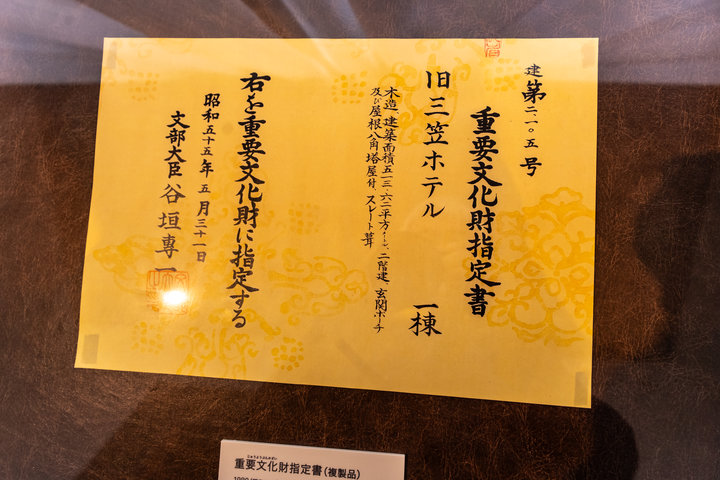 建第二一〇五号
重要文化財指定書
旧三笠ホテル 一棟
木造、建築面積五一三・六二平方メートル、二階建、玄関ポーチ
及び屋根八角塔屋付、スレート葺
右を重要文化財に指定する
昭和五十五年五月三十一日
文部大臣 谷垣專一
じゅうようぶんかざい
重要文化財指定書(複製品)